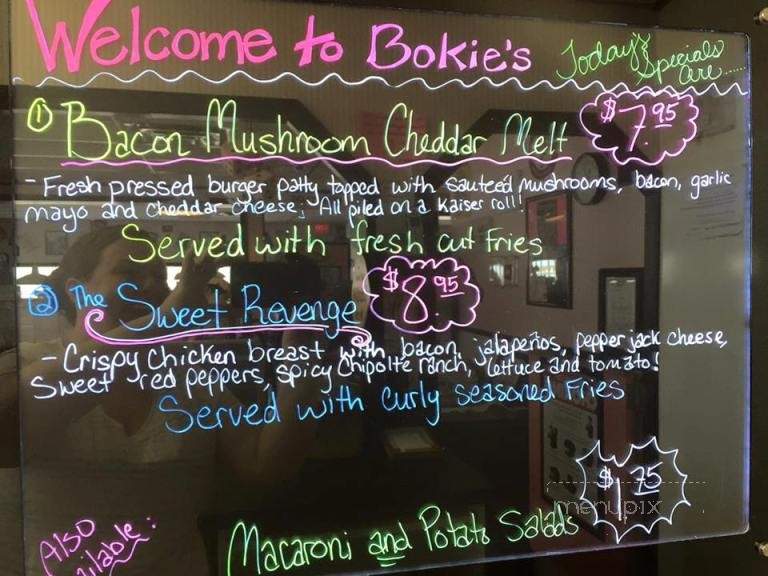 Welcome to Bokie's Today's
Specials
are.....
① Bacon Mushroom Cheddar Melt $7.95
- Fresh pressed burger patty topped with sauteéd mushrooms, bacon, garlic
mayo and cheddar cheese; All piled on a Kaiser roll!
Served with fresh cut Fries
② The Sweet Revenge $8.95
- Crispy Chicken breast with bacon, jalapeños, pepper jack cheese,
Sweet red peppers, spicy Chipolté ranch, lettuce and tomato!
Served with curly seasoned Fries
$1.75
menupix
Also
Macaroni and Potato Salads